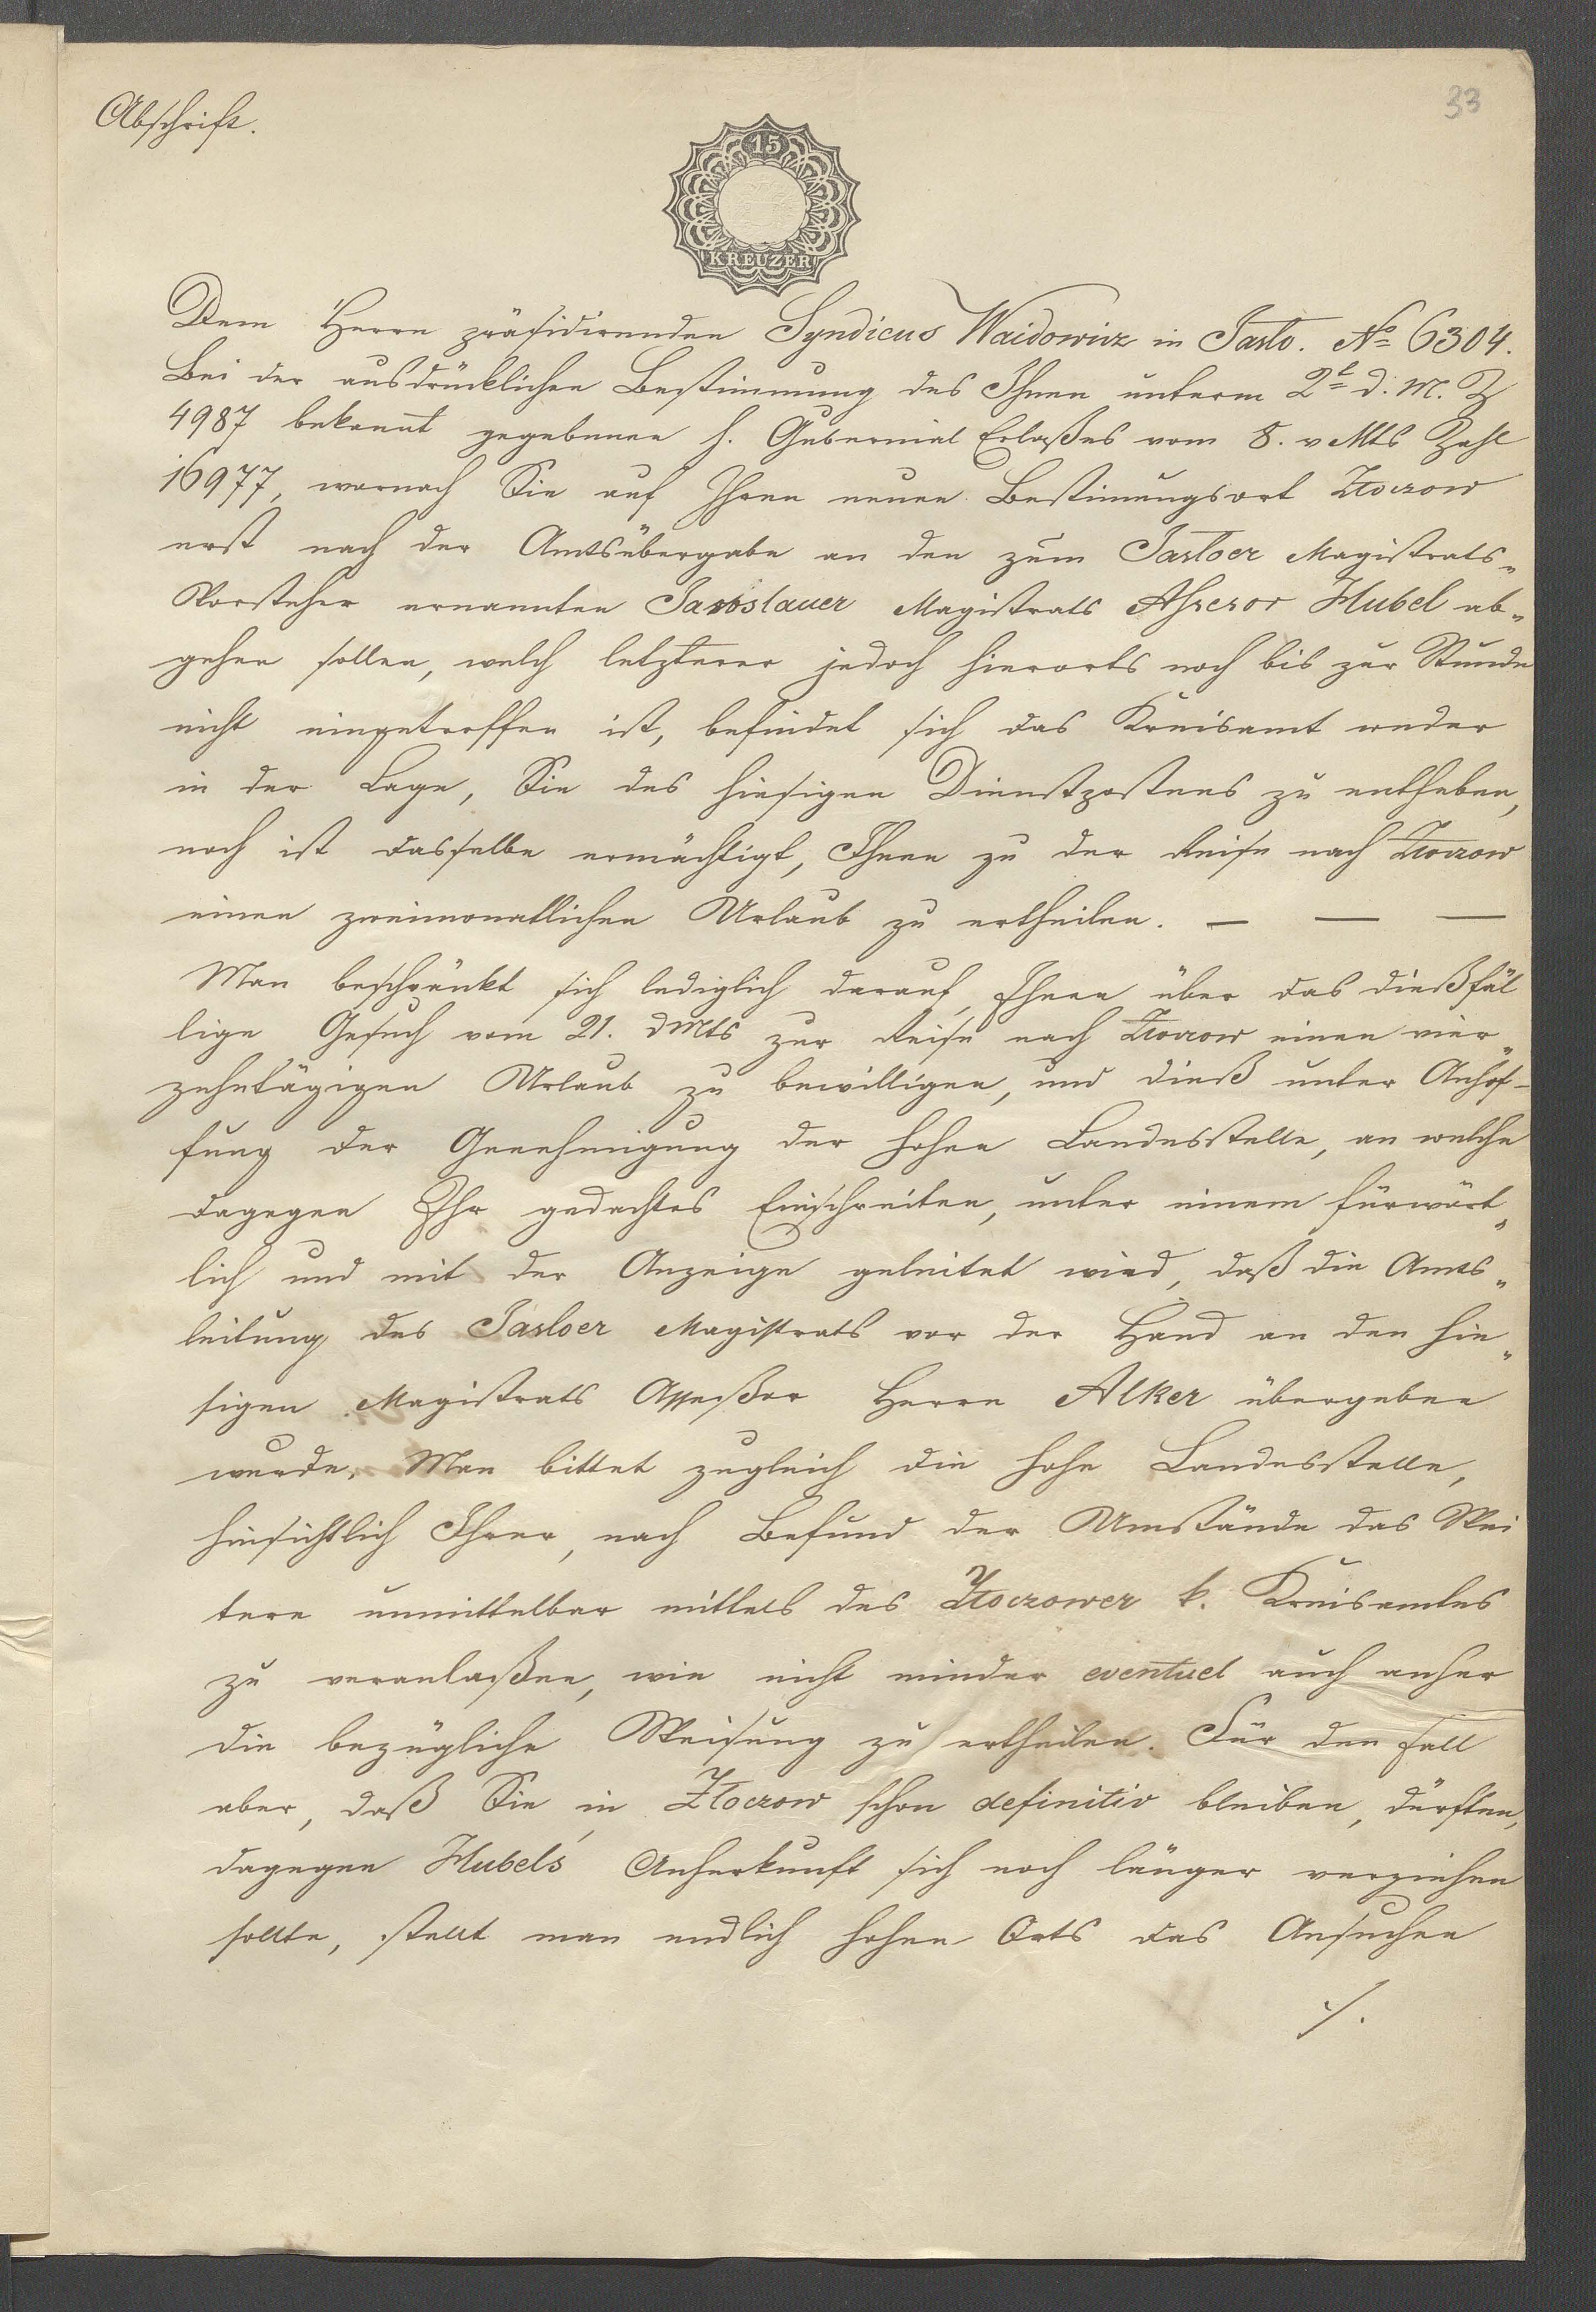 33
Abschrift.
15
KREUZER
Dem Herrn präsidirenden Syndicus Waidowicz in Jasło. No 6304.
Bei der ausdrücklichen Bestimmung des Ihnen unterm 2t d. M. Z
4987 bekannt gegebenen h. Gubernial Erlaßes vom 8. v Mts Zahl
16977, wornach Sie auf Ihren neuen Bestimungsort Złoczow
erst nach der Amtsübergabe an den zum Jasłoer Magistrats-
Vorsteher ernannten Jaroslauer Magistrats Assessor Hubel ab-
gehen sollen, welch letzterer jedoch hierorts noch bis zur Stunde
nicht eingetroffen ist, befindet sich das Kreisamt weder
in der Lage, Sie des hiesigen Dienstpostens zu entheben,
noch ist dasselbe ermächtigt, Ihnen zu der Reise nach Złoczow
einen zweimonatlichen Urlaub zu ertheilen. — — —
Man beschränkt sich lediglich darauf, Ihnen über das dießfäl
lige Gesuch vom 21. d Mts zur Reise nach Złoczow einen vier-
zehntägigen Urlaub zu bewilligen, und dieß unter Anhof-
fung der Genehmigung der hohen Landesstelle, an welche
dagegen Ihr gedachtes Einschreiten, unter einem fürwört-
lich und mit der Anzeige geleitet wird, daß die Amts-
leitung des Jasłoer Magistrats vor der Hand an den hie-
sigen Magistrats Assessor Herrn Alker übergeben
wurde. Man bittet zugleich die hohe Landesstelle,
hinsichtlich Ihrer, nach Befund der Umstände das Wei
tere unmittelbar mittels des Złoczower k. Kreisamtes
zu veranlaßen, wie nicht minder eventuel auch anher
die bezügliche Weisung zu ertheilen. Für den Fall
aber, daß Sie in Złoczow schon definitiv bleiben, dürften,
dagegen Hubels' Anherkunft sich noch länger verziehen
sollte, stellt man endlich hohen Orts das Ansuchen
./.